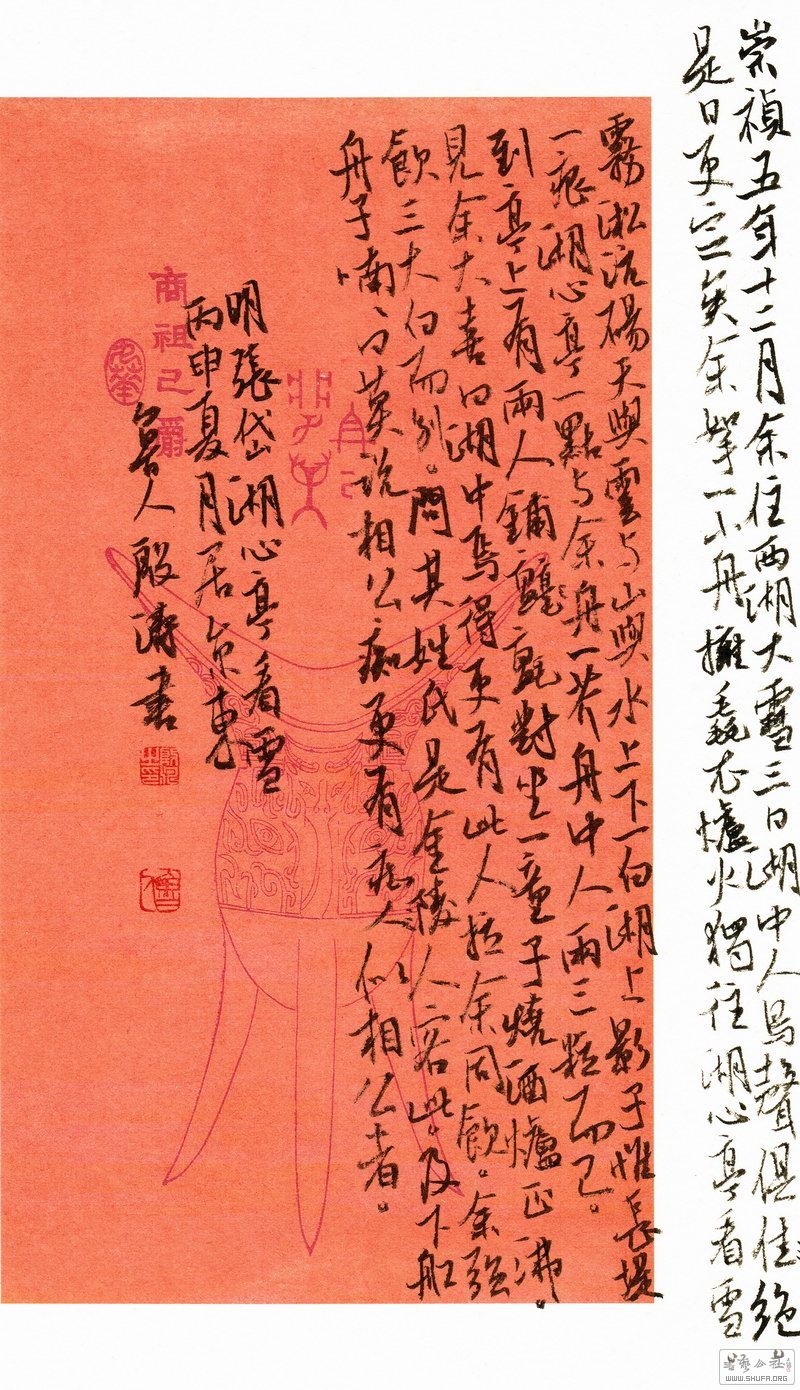 崇禎五年十二月余住西湖大雪三日湖中人鳥聲俱佳絕
是日更定矣余拏一小舟擁毳衣爐火獨往湖心亭看雪
霧淞沆碭天與雲与山與水上下一白湖上影子惟長堤
一痕湖心亭一點与余舟一芥舟中人兩三粒而已。
到亭上有兩人鋪氈氈對坐一童子燒酒爐正沸。
見余大喜曰湖中焉得更有此人拉余同飲。余強
飲三大白而別。問其姓氏是金陵人客此。及下船
舟子喃々曰莫說相公痴更有痴人似相公者。
明張岱湖心亭看雪
丙申夏月居京東
魯人殷濤書
商祖己爵
WWW.SHUFA.ORG